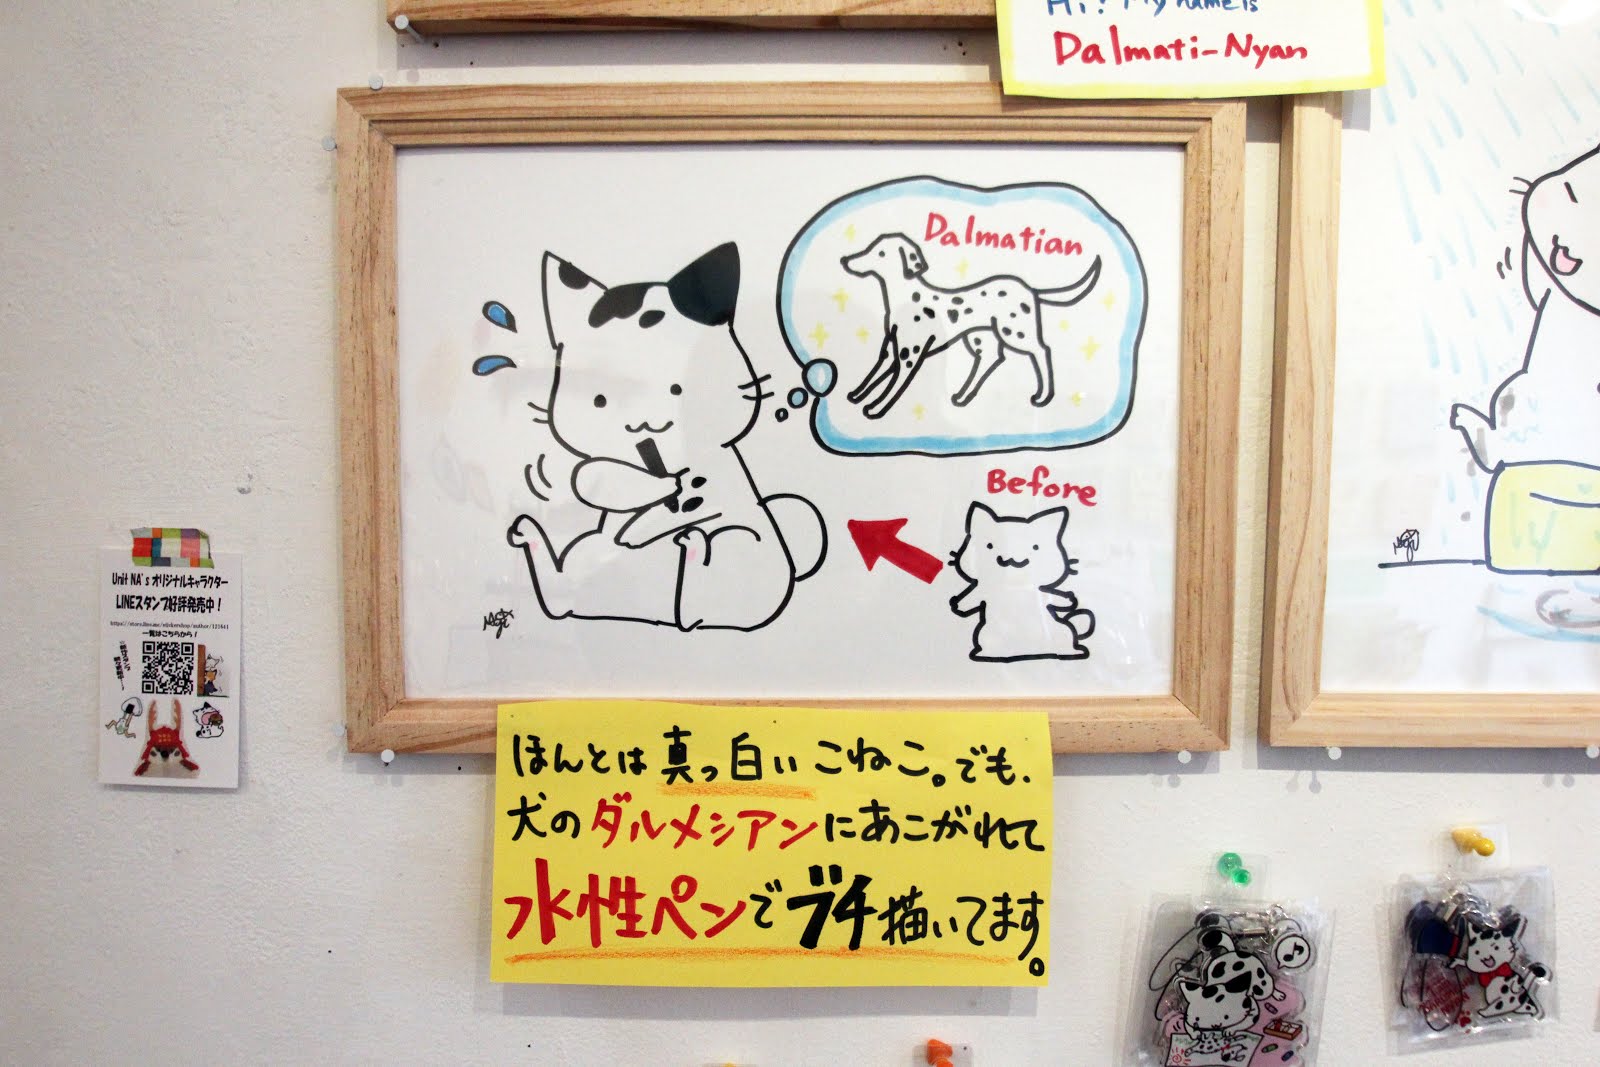 Hi! My name is
Dalmati-Nyan
Dalmatian
Before
ほんとは真っ白いこねこ。でも、
犬のダルメシアンにあこがれて
水性ペンでブチ描いてます。
Unit NA's オリジナルキャラクター
LINEスタンプ好評発売中!
https://store.line.me/stickershop/author/121641
一覧はこちらから!